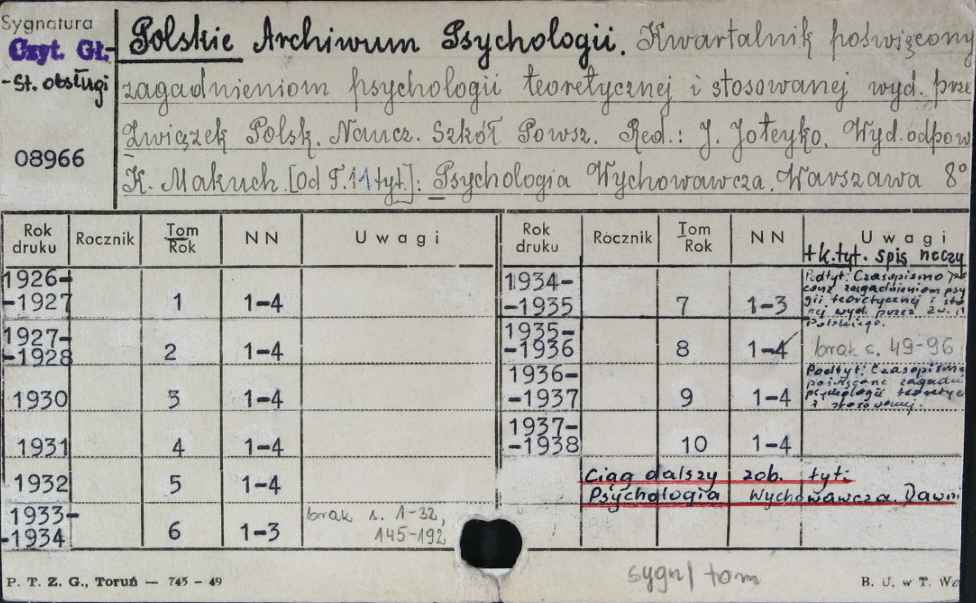 Sygnatura
Czyt. Gł.-
-St. obsługi
08966
Polskie Archiwum Psychologii. Kwartalnik poświęcony
zagadnieniom psychologii teoretycznej i stosowanej wyd. prze
Związek Polsk. Naucz. Szkół Powsz. Red.: J. Joteyko. Wyd. odpow
K. Makuch. [Od T. 11 tyt]: Psychologia Wychowawcza. Warszawa 8°
Rok druku Rocznik Tom Rok NN Uwagi
1926-
-1927 1 1-4
1927-
-1928 2 1-4
1930 3 1-4
1931 4 1-4
1932 5 1-4
1933-
-1934 6 1-3 brak s. 1-32,
145-192
Rok druku Rocznik Tom Rok NN Uwagi
+k.tyt. spis rzeczy
1934-
-1935 7 1-3
Podtyt: Czasopismo
zagadnieniom psy
gii teoretycznej i sto
nej wyd. przez Zw.
Polskiego.
1935-
-1936 8 1-4 brak s. 49-96
1936-
-1937 9 1-4
Podtyt: Czasopismo
poświęcone zagadn
psychologii teoretycz
i stosowanej.
1937-
-1938 10 1-4
Ciąg dalszy zob. tyt:
Psychologia Wychowawcza. Dawni
P. T. Z. G., Toruń — 745 - 49
sygn/tom
B. U. w T. Wz